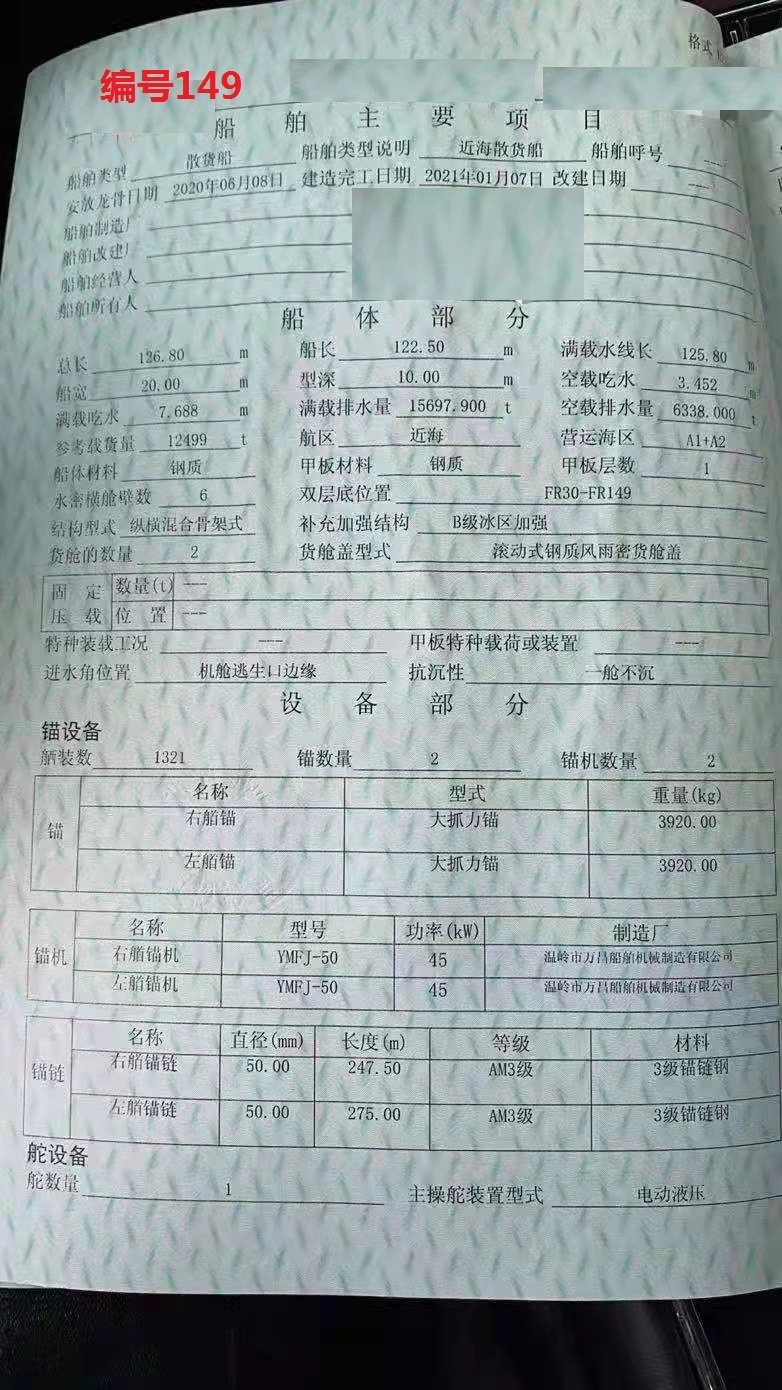 格式
编号149
船舶主要项目
船舶类型 散货船 船舶类型说明 近海散货船 船舶呼号 ---
安放龙骨日期 2020年06月08日 建造完工日期 2021年01月07日 改建日期 ---
船舶制造厂
船舶改建厂
船舶经营人
船舶所有人
船体部分
总长 126.80 m 船长 122.50 m 满载水线长 125.80 m
船宽 20.00 m 型深 10.00 m 空载吃水 3.452 m
满载吃水 7.688 m 满载排水量 15697.900 t 空载排水量 6338.000 t
参考载货量 12499 t 航区 近海 营运海区 A1+A2
船体材料 钢质 甲板材料 钢质 甲板层数 1
水密横舱壁数 6 双层底位置 FR30-FR149
结构型式 纵横混合骨架式 补充加强结构 B级冰区加强
货舱的数量 2 货舱盖型式 滚动式钢质风雨密货舱盖
固定 数量(t) ---
压载 位置 ---
特种装载工况 --- 甲板特种载荷或装置 ---
进水角位置 机舱逃生口边缘 抗沉性 一舱不沉
设备部分
锚设备
舾装数 1321 锚数量 2 锚机数量 2
锚 名称 型式 重量(kg)
右艏锚 大抓力锚 3920.00
左艏锚 大抓力锚 3920.00
锚机 名称 型号 功率(kW) 制造厂
右艏锚机 YMFJ-50 45 温岭市万昌船舶机械制造有限公司
左艏锚机 YMFJ-50 45 温岭市万昌船舶机械制造有限公司
锚链 名称 直径(mm) 长度(m) 等级 材料
右艏锚链 50.00 247.50 AM3级 3级锚链钢
左艏锚链 50.00 275.00 AM3级 3级锚链钢
舵设备
舵数量 1 主操舵装置型式 电动液压